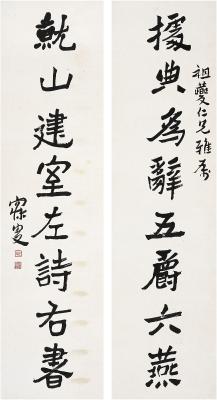 祖夔仁兄雅屬
據典為辭五爵六燕
就山建室左詩右書
寐叟